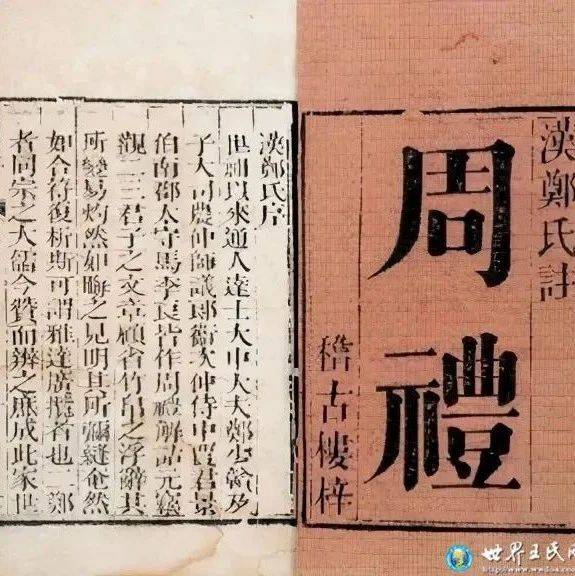 漢鄭氏註
周禮
稽古樓梓
漢鄭氏序
世祖以來通人達士大中大夫鄭少贛及
子大司農仲師議郎衛次仲侍中賈君景
伯南郡太守馬季長皆作周禮解詁元竊
觀二三君子之文章顧省竹帛之浮辭其
所變易灼然如晦之見明其所彌縫奄然
如合符復析斯可謂雅達廣攬者也 鄭
者同宗之大儒今贊而辨之庶成此家世
世界王氏网